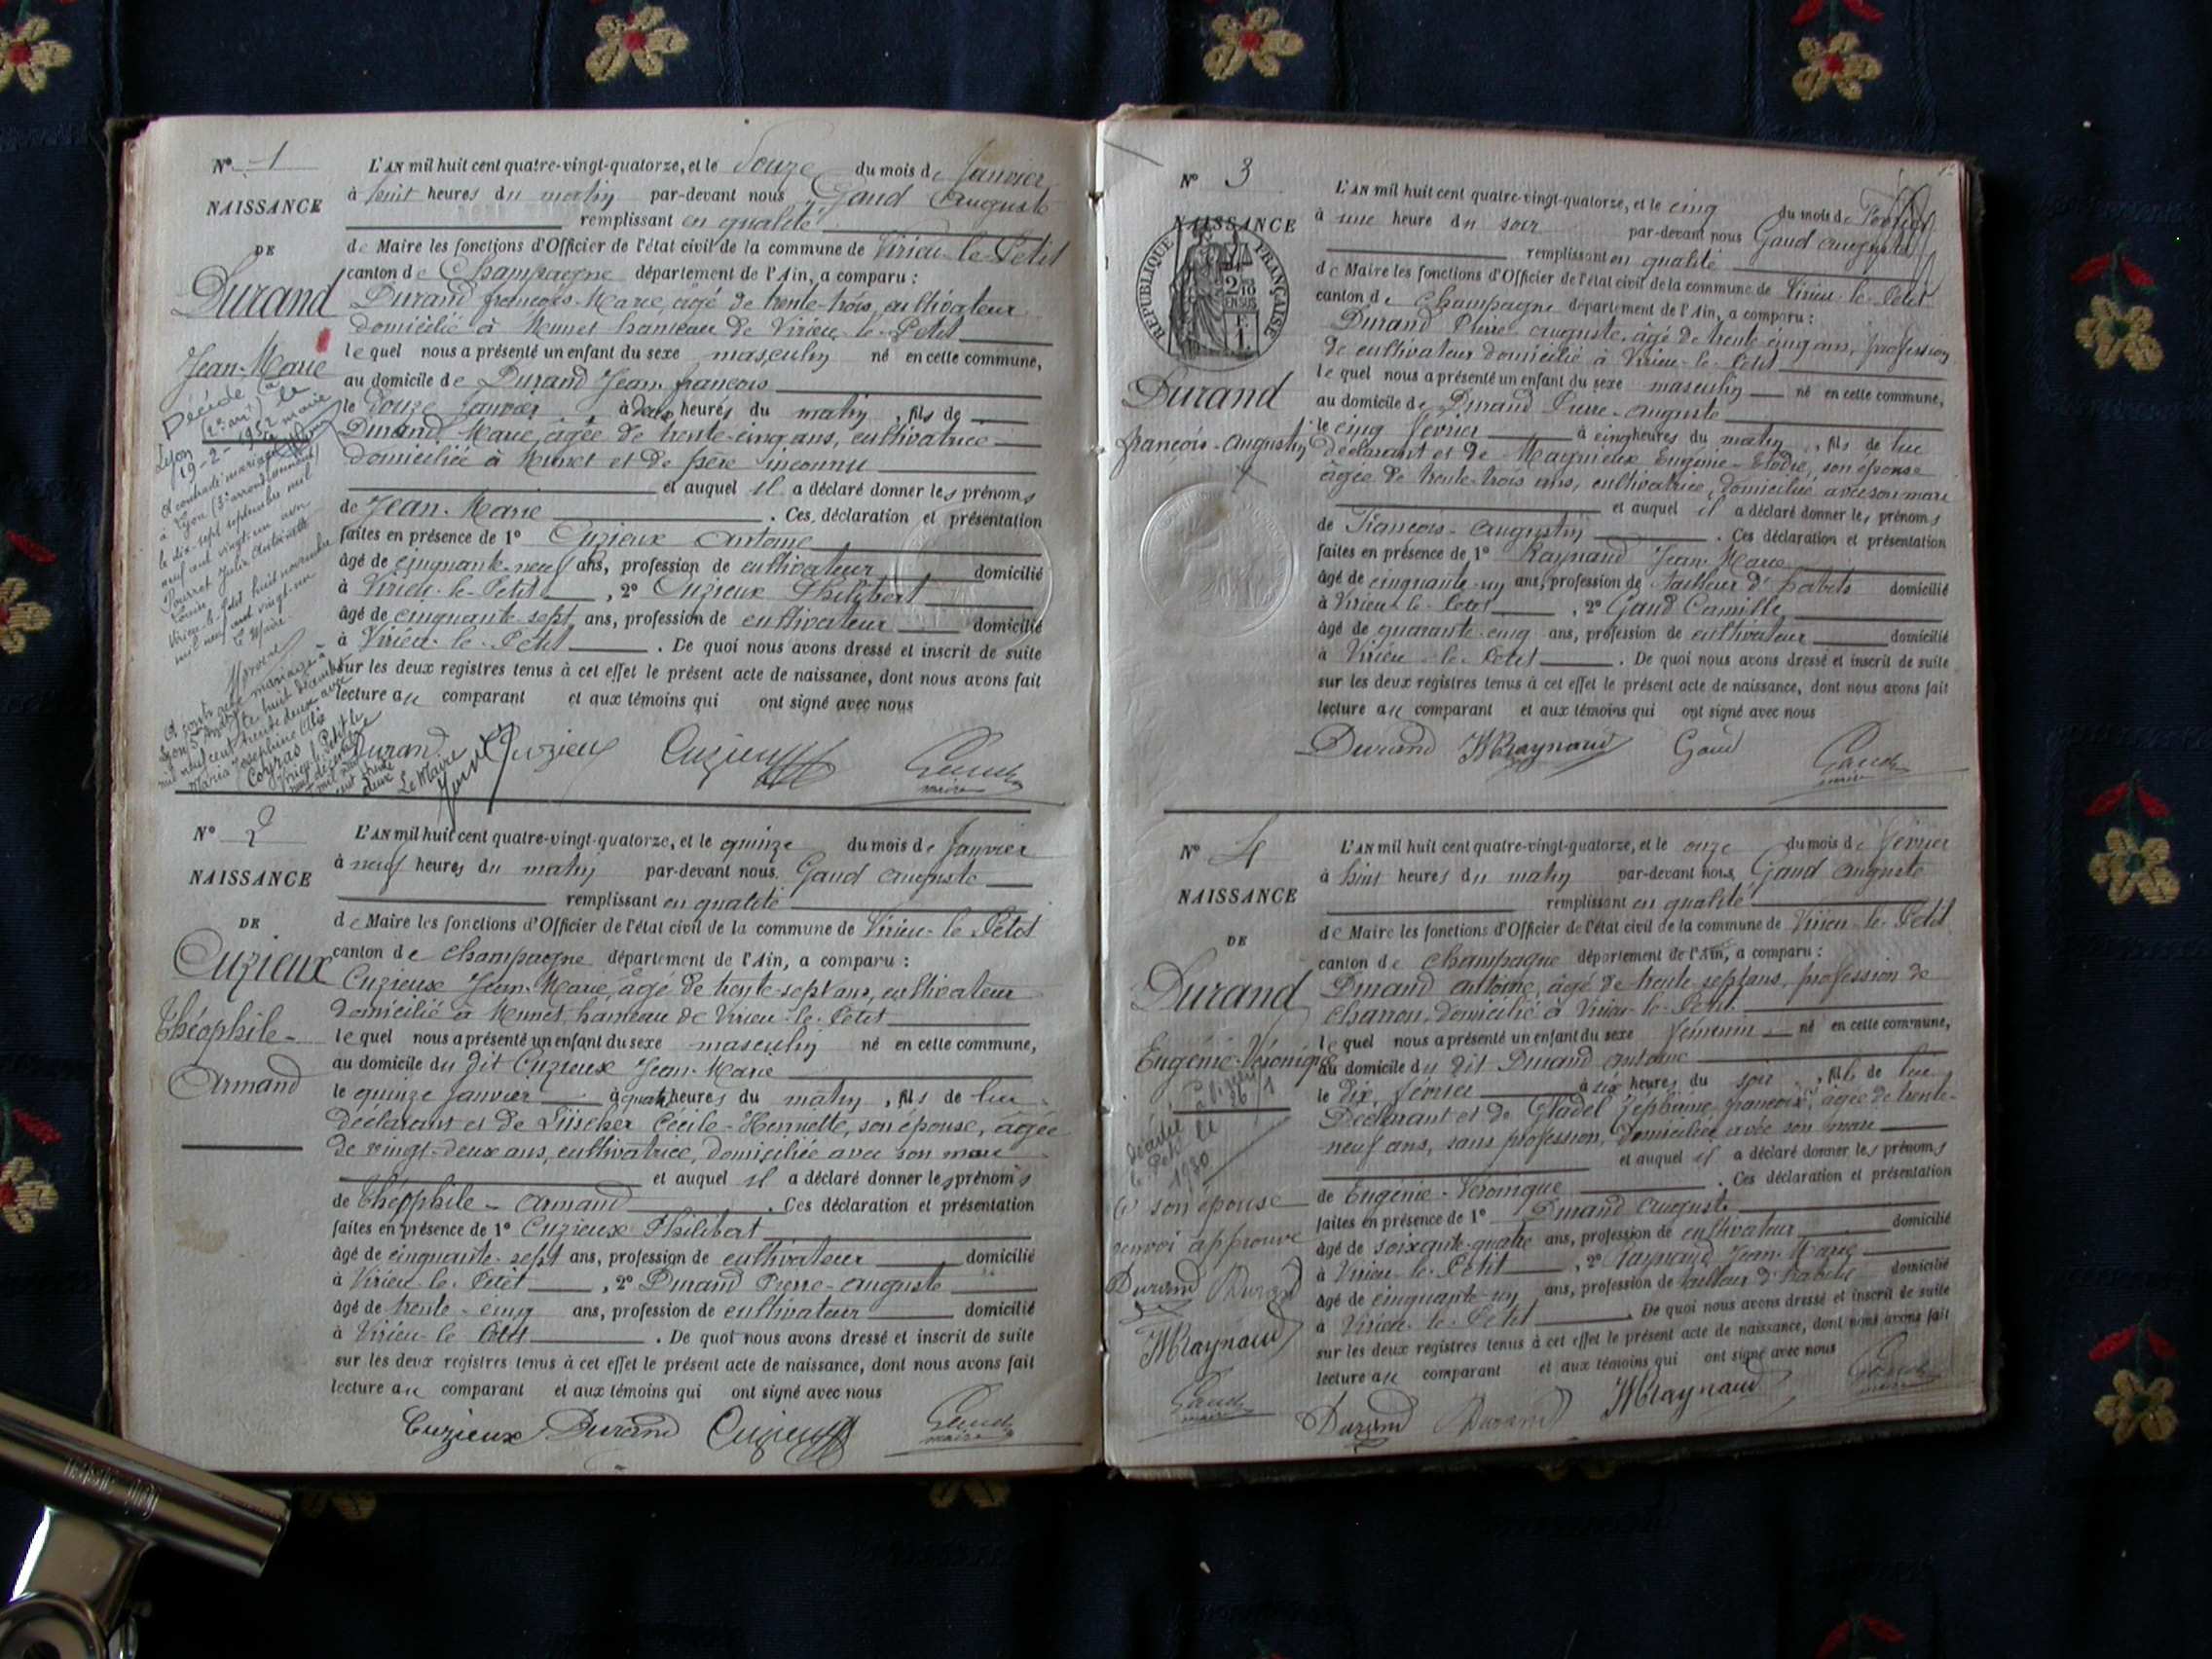 N° 1
NAISSANCE
DE
Durand
Jean-Marie
Décédé à
Lyon (2e arrt) le
19-2-1952
A contracté mariage
à Lyon (3e arrondissement)
le dix-sept septembre mil
neuf cent vingt-un avec
Pourret Julie Antoinette
Virieu-le-Petit huit novembre
mil neuf cent vingt-un
Le Maire
A contracté mariage à
Lyon le huit décembre
mil neuf cent trente deux avec
Maria Josephine
Virieu le Petit le
Le Maire
L'AN mil huit cent quatre-vingt-quatorze, et le Douze du mois de Janvier
à huit heures du matin par-devant nous Gaud Auguste
remplissant en qualité
de Maire les fonctions d'Officier de l'état civil de la commune de Virieu-le-Petit
canton de Champagne département de l'Ain, a comparu :
Durand françois-Marie, âgé de trente-trois, cultivateur
domicilié à Munet hameau de Virieu-le-Petit
lequel nous a présenté un enfant du sexe masculin né en cette commune,
au domicile de Durand Jean françois
le douze Janvier, à deux heures du matin, fils de
Durand Marie, âgée de trente-cinq ans, cultivatrice
domiciliée à Munet et de père inconnu
et auquel il a déclaré donner les prénoms
de Jean-Marie. Ces déclaration et présentation
faites en présence de 1° Cuzieux Antoine
âgé de cinquante-neuf ans, profession de cultivateur domicilié
à Virieu-le-Petit, 2° Cuzieux Philibert
âgé de cinquante sept ans, profession de cultivateur domicilié
à Virieu-le-Petit. De quoi nous avons dressé et inscrit de suite
sur les deux registres tenus à cet effet le présent acte de naissance, dont nous avons fait
lecture au comparant et aux témoins qui ont signé avec nous
Durand Cuzieux Cuzieux Gaud
maire
N° 2
NAISSANCE
DE
Cuzieux
Théophile-
Armand
L'AN mil huit cent quatre-vingt-quatorze, et le quinze du mois de Janvier
à neuf heures du matin par-devant nous Gaud Auguste
remplissant en qualité
de Maire les fonctions d'Officier de l'état civil de la commune de Virieu-le-Petit
canton de Champagne département de l'Ain, a comparu :
Cuzieux Jean-Marie, âgé de trente-sept ans, cultivateur
domicilié à Munet hameau de Virieu-le-Petit
lequel nous a présenté un enfant du sexe masculin né en cette commune,
au domicile du dit Cuzieux Jean-Marie
le quinze Janvier à quatre heures du matin, fils de lui
déclarant et de Lüscher Cécile-Henriette, son épouse, âgée
de vingt-deux ans, cultivatrice, domiciliée avec son mari
et auquel il a déclaré donner les prénoms
de Théophile-Armand. Ces déclaration et présentation
faites en présence de 1° Cuzieux Philibert
âgé de cinquante-sept ans, profession de cultivateur domicilié
à Virieu-le-Petit, 2° Durand Pierre-Auguste
âgé de trente-cinq ans, profession de cultivateur domicilié
à Virieu-le-Petit. De quoi nous avons dressé et inscrit de suite
sur les deux registres tenus à cet effet le présent acte de naissance, dont nous avons fait
lecture au comparant et aux témoins qui ont signé avec nous
Cuzieux Durand Cuzieux Gaud
maire
N° 3
NAISSANCE
RÉPUBLIQUE FRANÇAISE
Durand
françois-Augustin
L'AN mil huit cent quatre-vingt-quatorze, et le cinq du mois de Février
à une heure du soir par-devant nous Gaud Auguste
remplissant en qualité
de Maire les fonctions d'Officier de l'état civil de la commune de Virieu-le-Petit
canton de Champagne département de l'Ain, a comparu :
Durand Pierre Auguste, âgé de trente-cinq ans, profession
de cultivateur domicilié à Virieu-le-Petit
lequel nous a présenté un enfant du sexe masculin né en cette commune,
au domicile de Durand Pierre-Auguste
le cinq février à cinq heures du matin, fils de lui
déclarant et de Maynieux Eugénie-Elodie, son épouse
âgée de trente-trois ans, cultivatrice, domiciliée avec son mari
et auquel il a déclaré donner les prénoms
de François-Augustin. Ces déclaration et présentation
faites en présence de 1° Raynaud Jean-Marie
âgé de cinquante-un ans, profession de tailleur d'habits domicilié
à Virieu-le-Petit, 2° Gaud Camille
âgé de quarante-cinq ans, profession de cultivateur domicilié
à Virieu-le-Petit. De quoi nous avons dressé et inscrit de suite
sur les deux registres tenus à cet effet le présent acte de naissance, dont nous avons fait
lecture au comparant et aux témoins qui ont signé avec nous
Durand JMRaynaud Gaud Gaud
maire
N° 4
NAISSANCE
DE
Durand
Eugénie-Véronique
décédée
le
1980
(1) son épouse
renvoi approuvé
Durand Durand
JMRaynaud
Gaud
maire
L'AN mil huit cent quatre-vingt-quatorze, et le onze du mois de février
à huit heures du matin par-devant nous, Gaud Auguste
remplissant en qualité
de Maire les fonctions d'Officier de l'état civil de la commune de Virieu-le-Petit
canton de Champagne département de l'Ain, a comparu :
Durand Antoine, âgé de trente-sept ans, profession de
charron, domicilié à Virieu-le-Petit
lequel nous a présenté un enfant du sexe féminin né en cette commune,
au domicile du dit Durand Antoine
le dix février à six heures du soir, fille de lui
Déclarant et de Gladel Zéphirine françoise, âgée de trente-
neuf ans, sans profession, domiciliée avec son mari
et auquel il a déclaré donner les prénoms
de Eugénie-Véronique. Ces déclaration et présentation
faites en présence de 1° Durand Auguste
âgé de soixante-quatre ans, profession de cultivateur domicilié
à Virieu-le-Petit, 2° Raynaud Jean-Marie
âgé de cinquante-un ans, profession de tailleur d'habits domicilié
à Virieu-le-Petit. De quoi nous avons dressé et inscrit de suite
sur les deux registres tenus à cet effet le présent acte de naissance, dont nous avons fait
lecture au comparant et aux témoins qui ont signé avec nous
Durand Durand JMRaynaud Gaud
maire